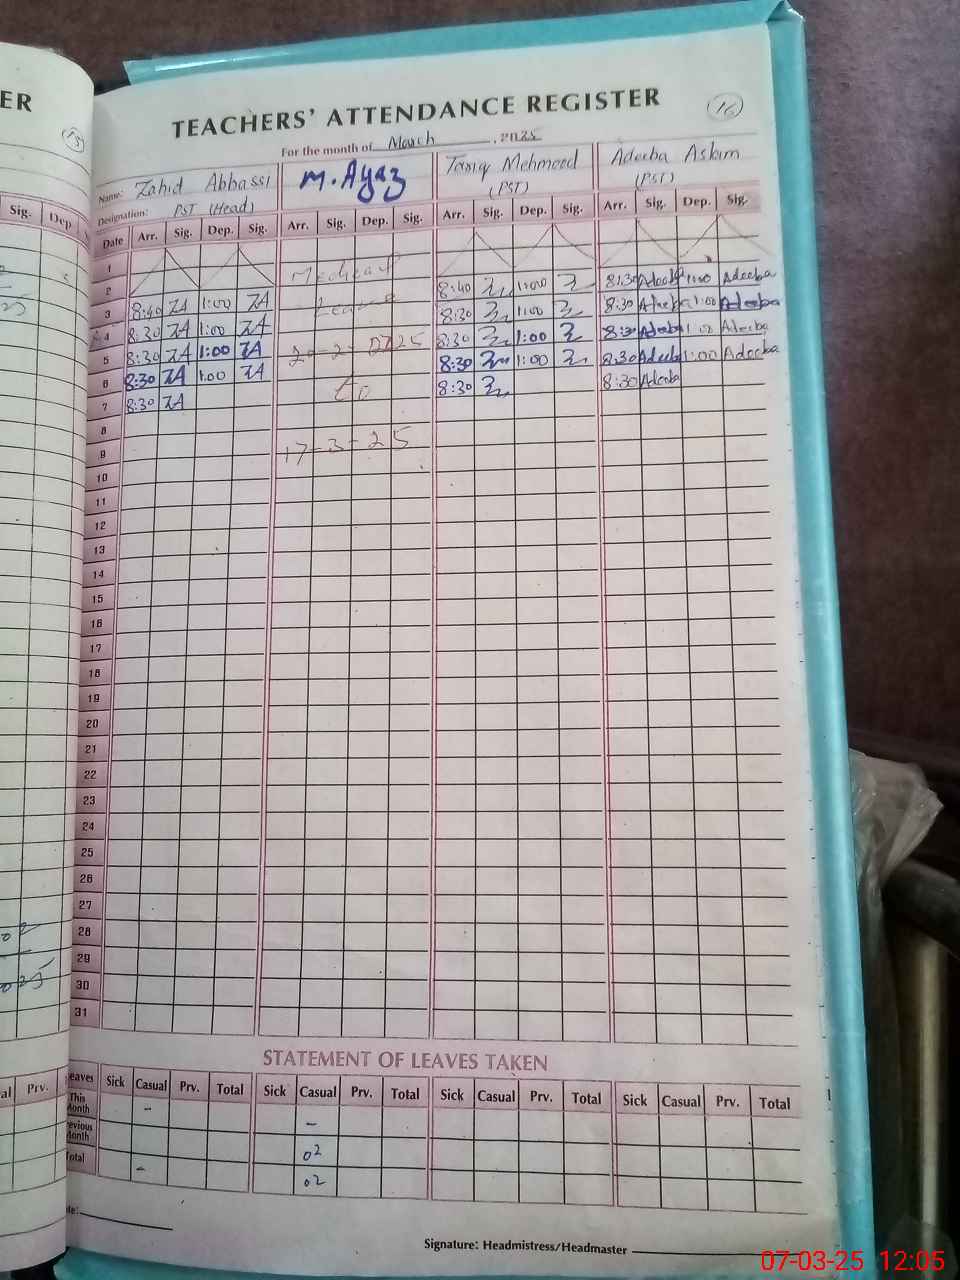 ER
15
Sig. Dep.
TEACHERS' ATTENDANCE REGISTER
16
For the month of March, 2025
Name: Zahid Abbassi M. Ayaz Tariq Mehmood Adeeba Aslam
Designation: PST (Head) (PST) (PST)
Date Arr. Sig. Dep. Sig. Arr. Sig. Dep. Sig. Arr. Sig. Dep. Sig. Arr. Sig. Dep. Sig.
1
2 Medical
3 8:40 ZA 1:00 ZA Leave 8:40 1:00 8:30 Adeeba 1:00 Adeeba
4 8:30 ZA 1:00 ZA 8:30 1:00 8:30 Adeeba 1:00 Adeeba
5 8:30 ZA 1:00 ZA 8:30 1:00 8:30 Adeeba 1:00 Adeeba
6 8:30 ZA 1:00 ZA to 8:30 1:00 8:30 Adeeba 1:00 Adeeba
7 8:30 ZA 8:30 8:30 Adeeba
8
9 17-3-25
10
11
12
13
14
15
16
17
18
19
20
21
22
23
24
25
26
27
28
29
30
31
STATEMENT OF LEAVES TAKEN
Prv. eaves Sick Casual Prv. Total Sick Casual Prv. Total Sick Casual Prv. Total Sick Casual Prv. Total
This Month - -
revious Month 02
otal - 02
Signature: Headmistress/Headmaster
07-03-25 12:05